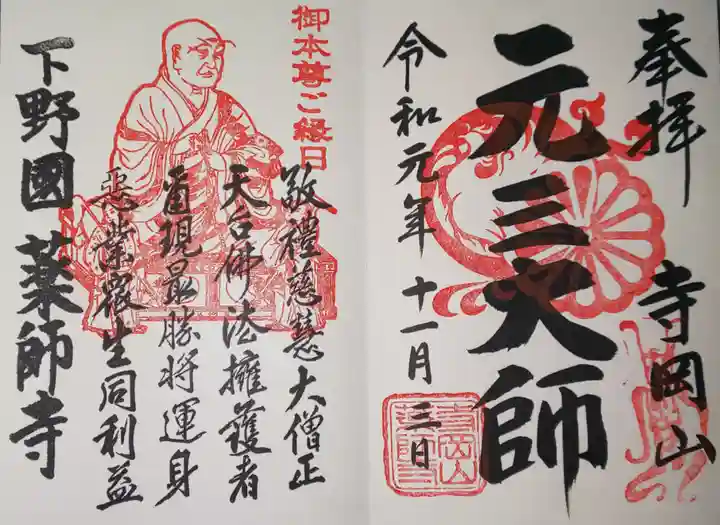 奉拝
寺岡山
元三大師
令和元年十一月三日
寺岡山
御本尊ご縁日
敬禮慈慧大僧正
天台佛法擁護者
示現最勝將運身
惡業衆生同利益
下野國薬師寺